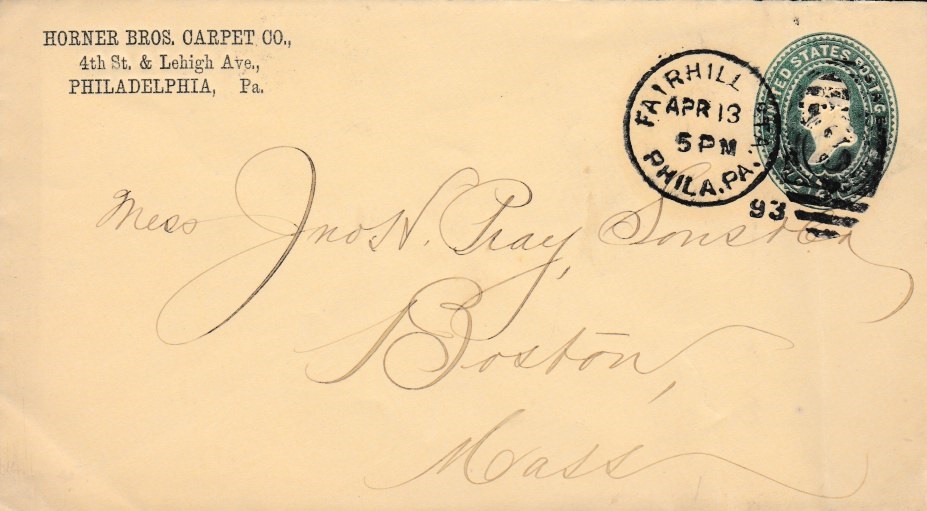 HORNER BROS. CARPET CO.,
4th St. & Lehigh Ave.,
PHILADELPHIA, Pa.
FAIRHILL STA.
APR 13
5 PM
PHILA. PA.
93
UNITED STATES POSTAGE
Mess Jno H. Pray, Sons & Co
Boston,
Mass